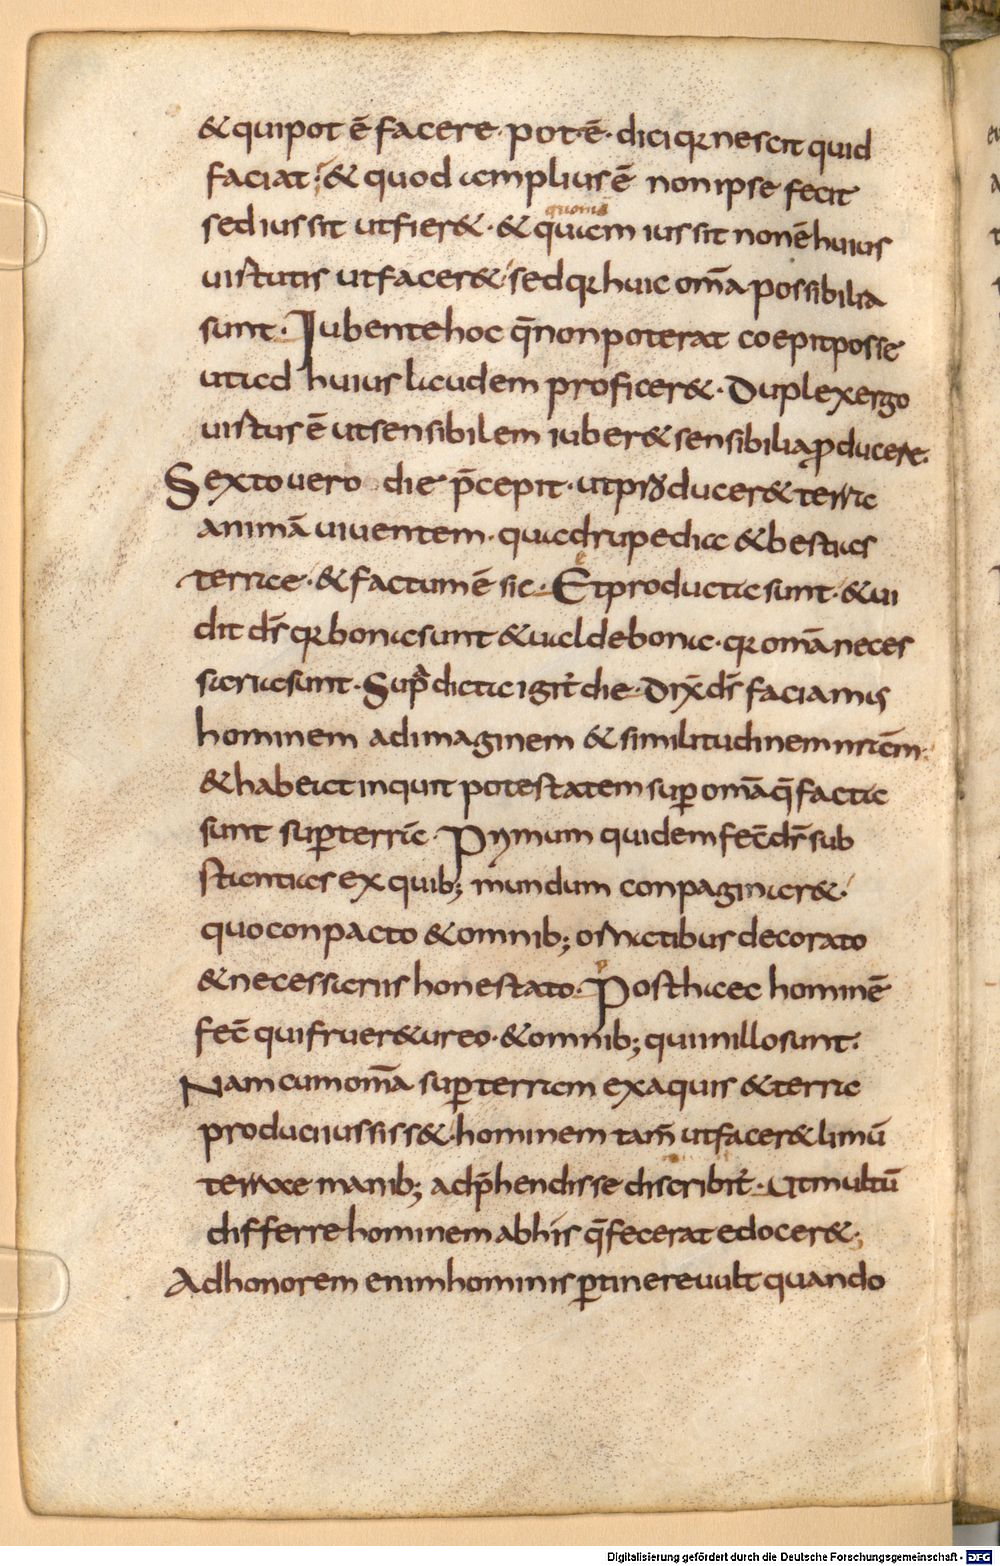 & qui pot ē facere · pot ē · dici qr nescit quid
faciat · & quod amplius ē non ipse fecit
sed iussit ut fier& · & quiam iussit non ē huius
quonia
uirtutis ut facer& · sed qr huic om̄a possibilia
sunt · Iubente hoc q̄ non poterat coepit posse
ut ad huius laudem proficer& · Duplex ergo
uirtus ē ut sensibilem iuber& sensibilia ꝓducere ·
Sexto uero die p̄cepit · ut producer& terra
animā uiuentem · quadrupedia & bestias
terrae · & factum ē sic · Et producta sunt · & ui
dit d̄s qr bona sunt & ualde bona · qr om̄a neces
saria sunt · Supradicta igit̄ die · Dix̄ d̄s faciamus
hominem ad imaginem & similitudinem nr̄am ·
& habeat inquit potestatem suꝑ om̄a q̄ facta
sunt suꝑ terrā · Primum quidem fec̄ d̄s sub
stantias ex quib; mundum conpaginar& ·
quo conpacto & omnib; ornatibus decorato
& necessariis honestato · Post haec hominē
fec̄ qui fruer&ur eo · & omnib; qui in illo sunt ·
Nam cum om̄a suꝑ terram ex aquis & terra
produci iussiss& · hominem tam̄ ut facer& limū
terrae manib; adp̄hendisse discribit̄ · Ut multū
differre hominem ab his q̄ fecerat edocer& ·
Ad honorem enim hominis ꝑtinere uult quando
Digitalisierung gefördert durch die Deutsche Forschungsgemeinschaft - DFG